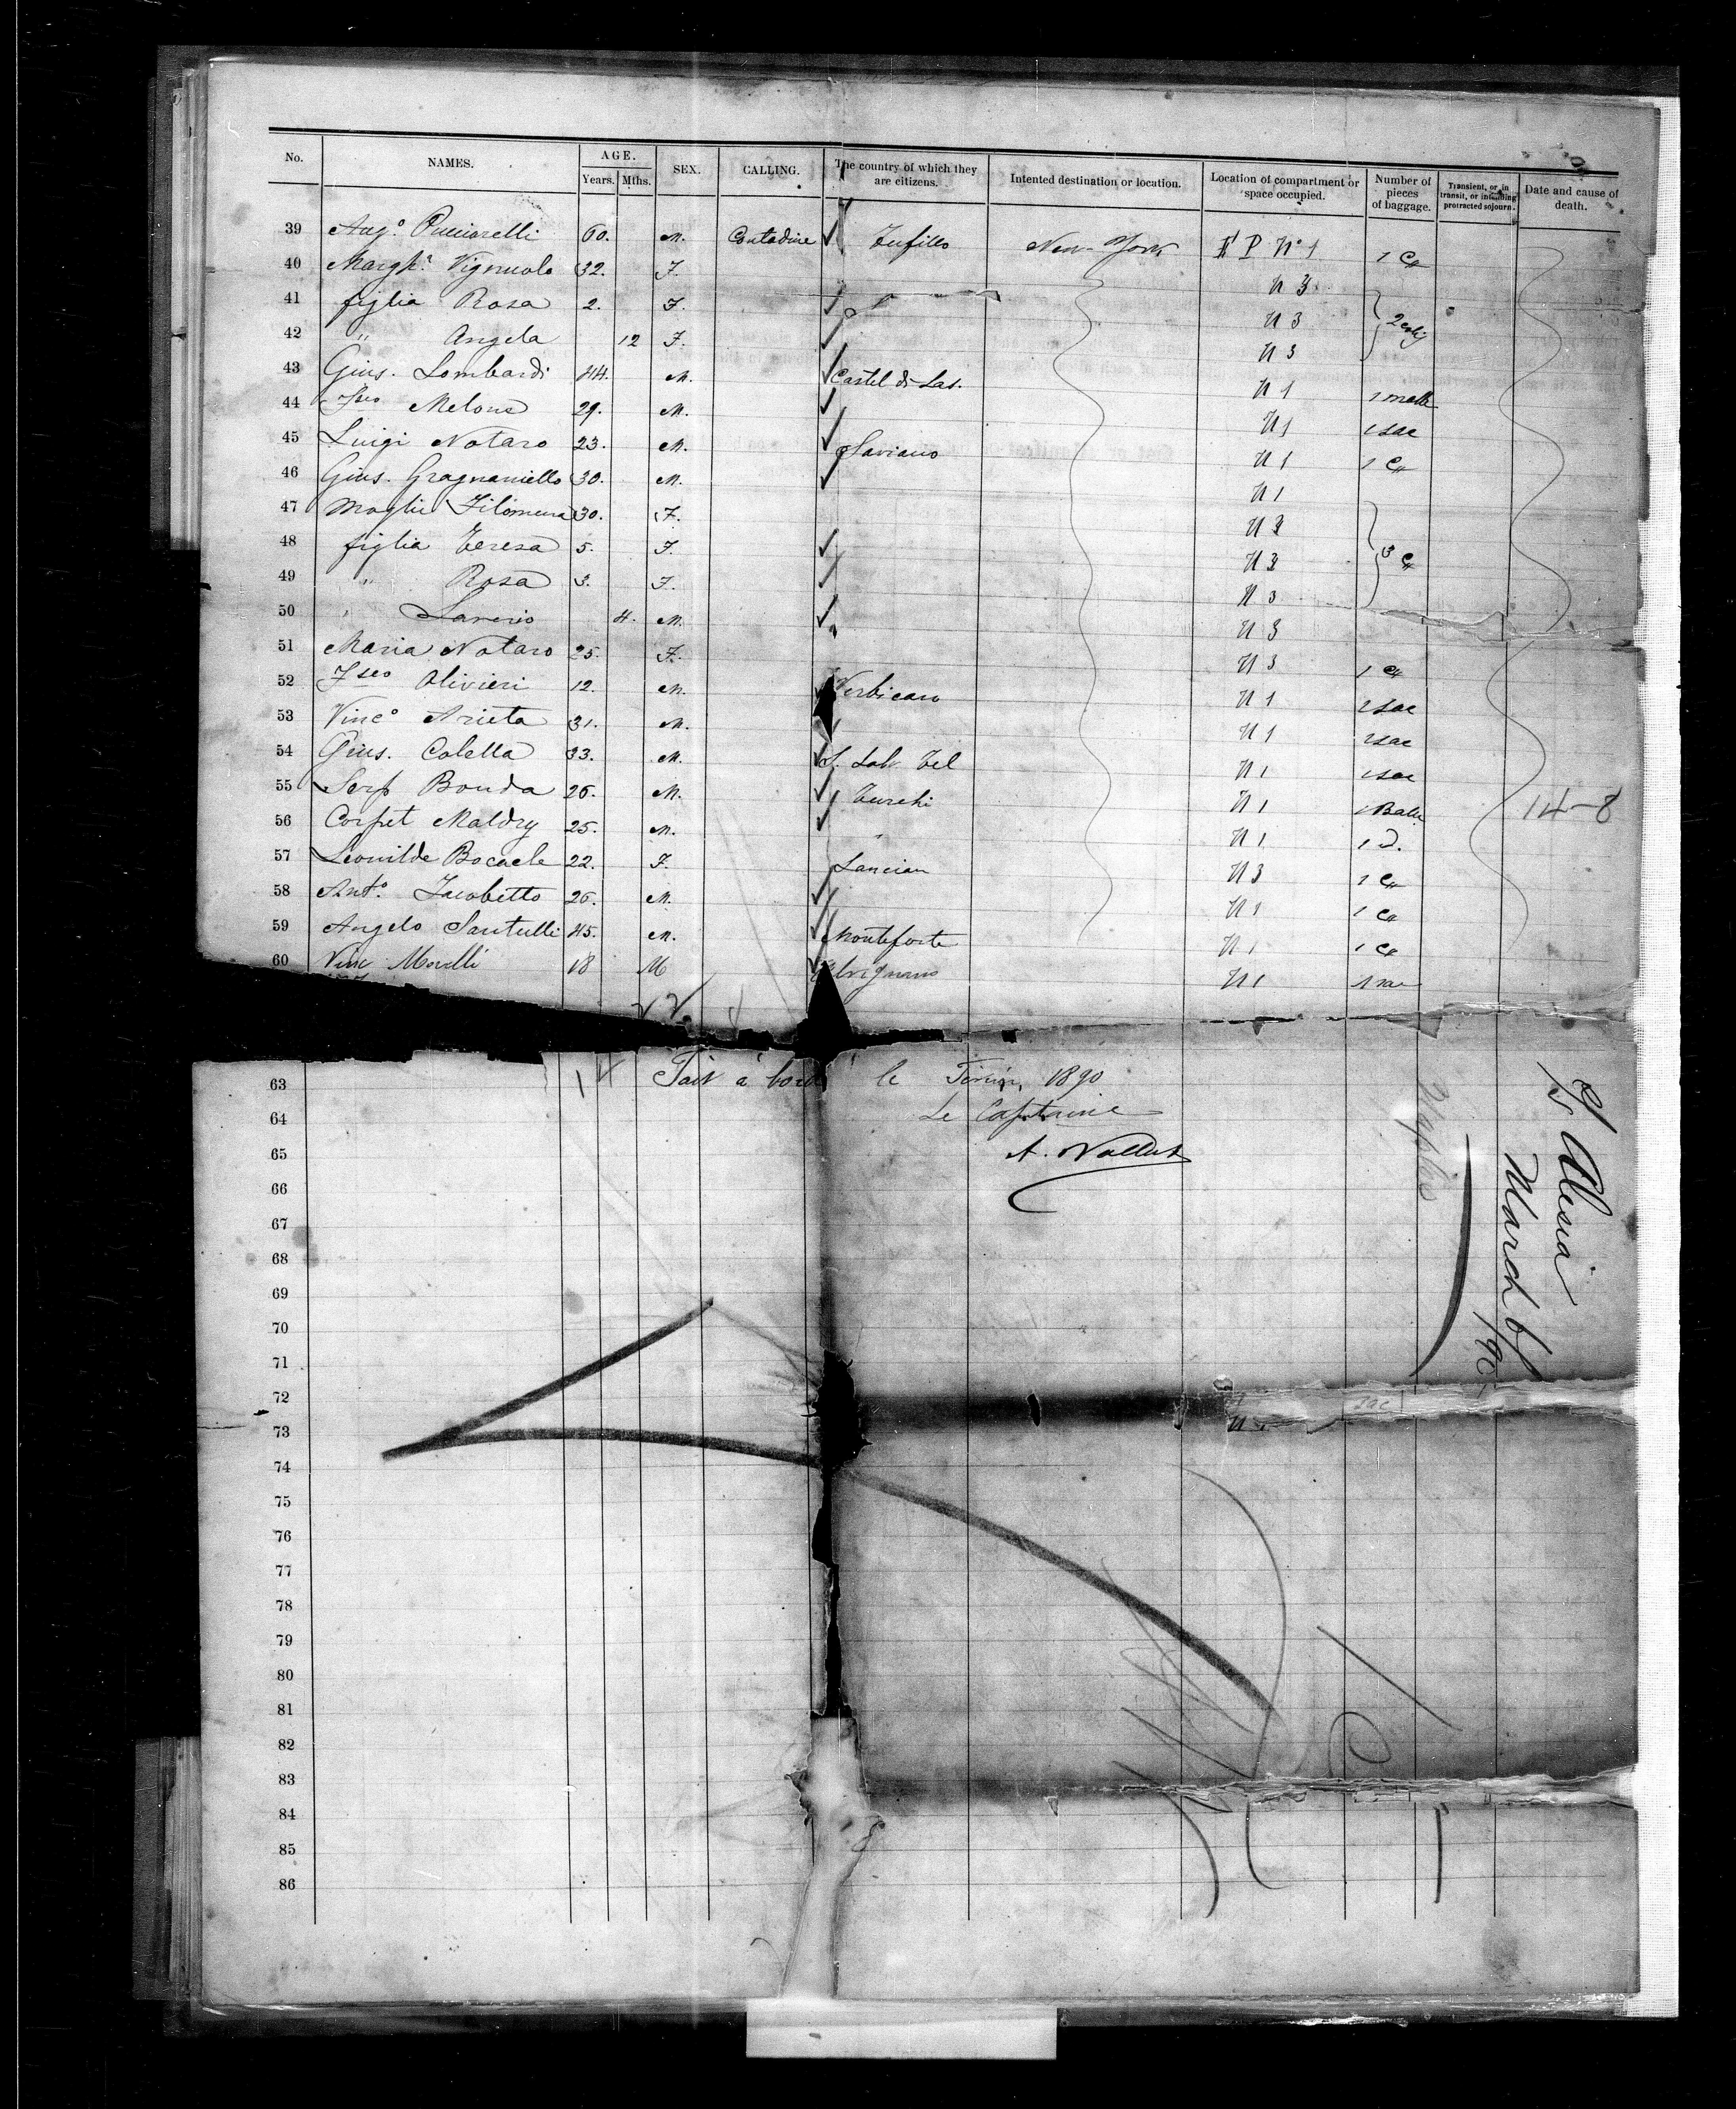 No. NAMES. AGE. Years. Mths. SEX. CALLING. The country of which they are citizens. Intented destination or location. Location of compartment or space occupied. Number of pieces of baggage. Transient, or in transit, or intending protracted sojourn. Date and cause of death.
39 Ang.o Pucciarelli 60. M. Contadine Tufillo New-York E P No 1 1 Ca
40 Margh.a Vignuolo 32. F. N 3
41 figlia Rosa 2. F. N 3 2
42 " Angela 12 F. N 3
43 Gius. Lombardi 44. M. Castel di Las. N 1 1
44 Fsco Melone 29. M. N 1 1 sac
45 Luigi Notaro 23. M. Saviano N 1 1 Ca
46 Gius. Gragnaniello 30. M. N 1
47 Moglie Filomena 30. F. N 3
48 figlia Teresa 5. F. N 3 3 Ca
49 " Rosa 3. F. N 3
50 " Saverio 4. M. N 3
51 Maria Notaro 25. F. N 3 1 Ca
52 Fsco Olivieri 12. M. Verbicaro N 1 1 sac
53 Vinco Arieta 31. M. N 1 1 sac
54 Gius. Colella 33. M. S. Salv. Tel N 1 1 sac
55 Serf Bouda 26. M. Turchi N 1 1 Balle 14-8
56 Corpet Maldry 25. M. " N 1 1 D.
57 Leonilde Bocacle 22. F. Lancian N 3 1 Ca
58 Anto. Jacobetto 26. M. N 1 1 Ca
59 Angelo Santulli 45. M. Monteforte N 1 1 Ca
60 Vinc Morelli 18 M Alvignano N 1 1
63 Fait à bord le 1890
64 Le Capitaine
65 A. Nallut
66
67
68
69
70
71
72
73
74
75
76
77
78
79
80
81
82
83
84
85
86
Naples
S/S Alesia
March 6/90